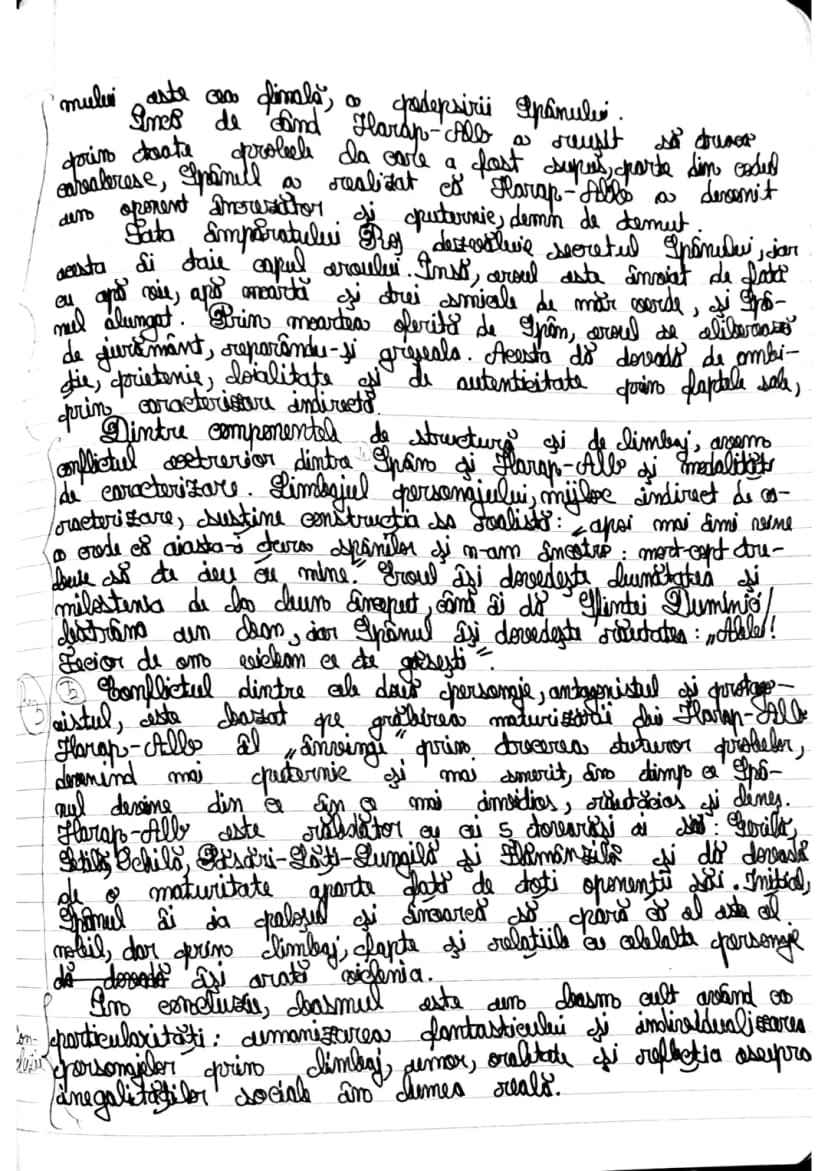 mului este cea finală, a pedepsirii Spânului.
Încă de când Harap-Alb a reușit să treacă
prin toate probele la care a fost supus, parte din codul
cavaleresc, Spânul a realizat că Harap-Alb a devenit
un oponent încrezător și puternic, demn de temut.
Fata Împăratului Roș dezvăluie secretul Spânului, iar
acesta îi taie capul eroului. Însă, eroul este înviat de fată
cu apă vie, apă moartă și trei smicele de măr verde, și Spâ-
nul alungat. Prin moartea oferită de Spân, eroul se eliberează
de jurământ, reparându-și greșeala. Acesta dă dovadă de ambi-
ție, prietenie, loialitate și de autenticitate prin faptele sale,
prin caracterizare indirectă.
Dintre componentele de structură și de limbaj, avem
conflictul exterior dintre Spân și Harap-Alb și modalități
de caracterizare. Limbajul personajului, mijloc indirect de ca-
racterizare, susține construcția sa realistă: „apoi mai îmi vine
a crede că aiasta-i țara spânilor și n-am încotro: mort-copt tre-
buie să te ieu cu mine." Eroul își dovedește bunătatea și
milostenia de la bun început, când îi dă Sfintei Duminici/
bătrâna un ban, iar Spânul își dovedește răutatea: „Alelei!
Fecior de om viclean ce te găsești".
(5) Conflictul dintre cele două personaje, antagonistul și protago-
nistul, este bazat pe grăbirea maturizării lui Harap-Alb.
Harap-Alb îl „învinge" prin trecerea tuturor probelor,
devenind mai puternic și mai smerit, în timp ce Spâ-
nul devine din ce în ce mai insidios, răutăcios și leneș.
Harap-Alb este răbdător cu cei 5 tovarăși ai săi: Gerilă,
Setilă, Ochilă, Păsări-Lăți-Lungilă și Flămânzilă și dă dovadă
de o maturitate aparte față de toți oponenții săi. Inițial,
Spânul îi ia paloșul și încearcă să pară că el este el
nobil, dar prin limbaj, fapte și relațiile cu celelalte personaje
dă dovadă își arată viclenia.
În concluzie, basmul este un basm cult având ca
particularități: umanizarea fantasticului și individualizarea
personajelor prin limbaj, umor, oralitate și reflecția asupra
inegalităților sociale în lumea reală.